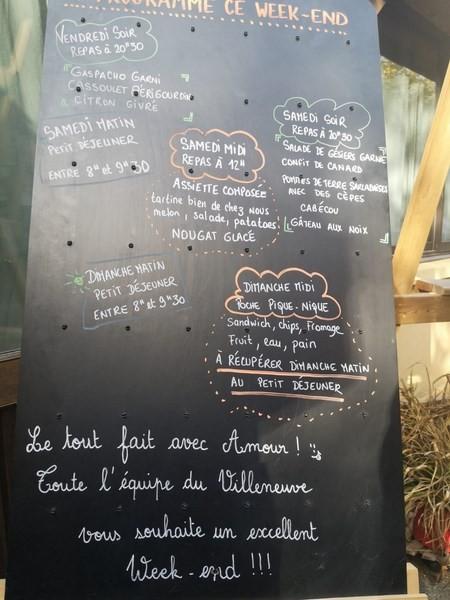 PROGRAMME CE WEEK-END
VENDREDI SOIR
REPAS à 20H30
GASPACHO GARNI
CASSOULET PÉRIGOURDIN
& CITRON GIVRÉ
SAMEDI MATIN
PETIT DEJEUNER
ENTRE 8H et 9H30
SAMEDI MIDI
REPAS à 12H
ASSIETTE COMPOSÉE
tartine bien de chez nous
melon, salade, patatoes
NOUGAT GLACÉ
SAMEDI SOIR
REPAS à 20H30
SALADE DE GÉSIERS GARNIE
CONFIT DE CANARD
POMMES DE TERRE SARLADAISES
AVEC DES CÈPES
CABÉCOU
GÂTEAU AUX NOIX
DIMANCHE MATIN
PETIT DÉJEUNER
ENTRE 8H et 9H30
DIMANCHE MIDI
POCHE PIQUE-NIQUE
Sandwich, chips, fromage
Fruit, eau, pain
À RÉCUPÉRER DIMANCHE MATIN
AU PETIT DÉJEUNER
Le tout fait avec Amour !
Toute l'équipe du Villeneuve
vous souhaite un excellent
Week-end !!!